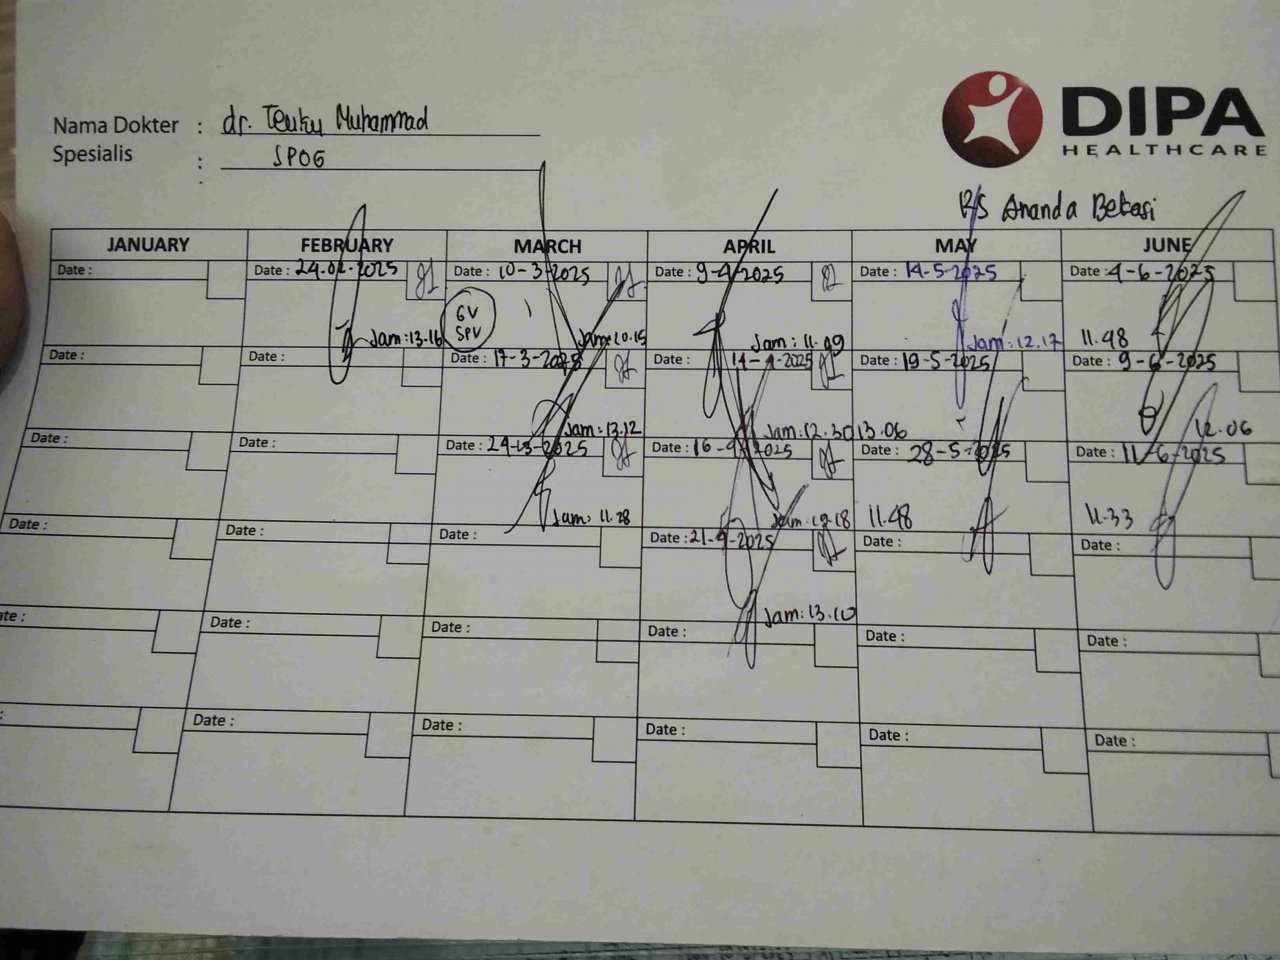 DIPA
HEALTHCARE
Nama Dokter : dr. Teuku Muhammad
Spesialis : SPOG
:
RS Ananda Bekasi
JANUARY FEBRUARY MARCH APRIL MAY JUNE
Date : Date : 24-02-2025 Date : 10-3-2025 Date : 9-4-2025 Date : 14-5-2025 Date : 4-6-2025
GV
SPV
Jam: 13.16 Jam: 10.15 Jam: 11.09 Jam: 12.17 11.48
Date : Date : Date : 17-3-2025 Date : 14-4-2025 Date : 19-5-2025 Date : 9-6-2025
Jam: 13.12 Jam: 12.30 13.06 12.06
Date : Date : Date : 24-03-2025 Date : 16-4-2025 Date : 28-5-2025 Date : 11-6-2025
Jam: 11.28 Jam: 12.18 11.48 11.33
Date : Date : Date : Date : 21-4-2025 Date : Date :
Jam: 13.10
ate : Date : Date : Date : Date : Date :
: Date : Date : Date : Date : Date :